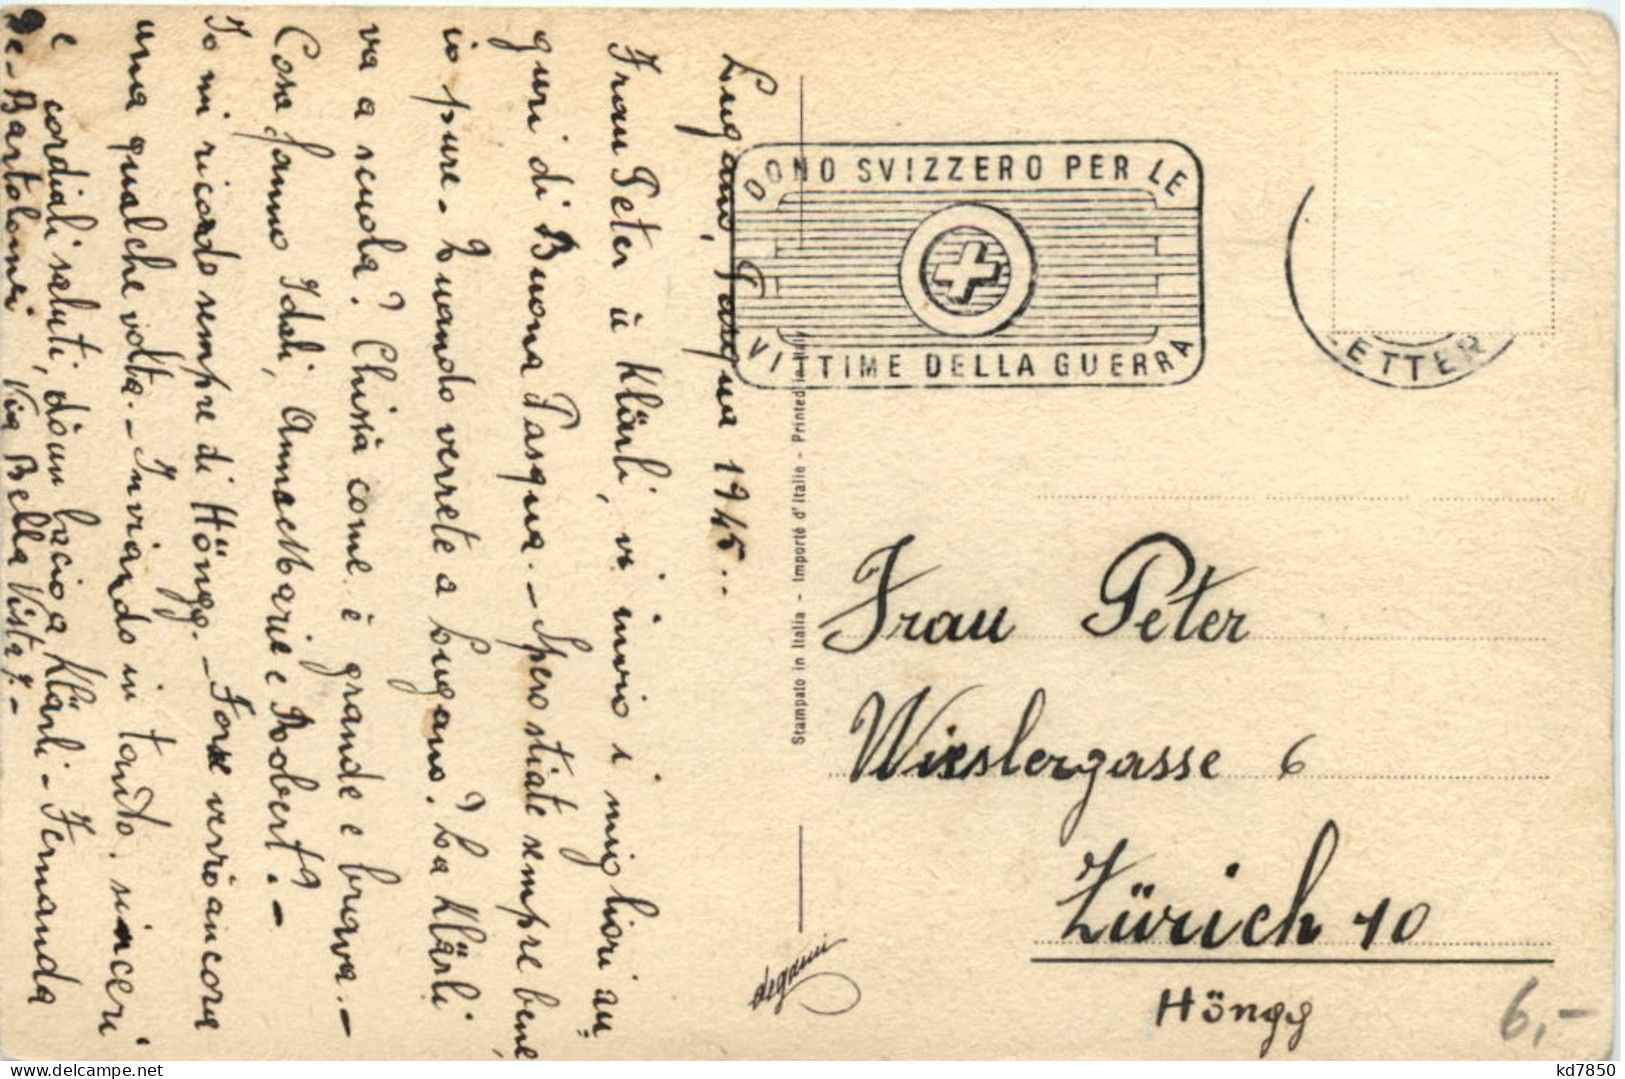 Lugano, Pasqua 1945..
Frau Peter ü Klärli, vi invio i migliori au
guri di Buona Pasqua. - Spero stiate sempre bene,
io pure. - Quando verrete a Lugano? La Klärli
va a scuola? Chissà come è grande e brava. -
Cosa fanno Idali, Annamarie e Robert? -
Io mi ricordo sempre di Höngg. - Forse verrò ancora
una qualche volta. - Inviando in tanto, sinceri
e cordiali saluti, dò un bacio a Klärli - Fernanda
De-Bartolomei Via Bella Vista 7. -
DONO SVIZZERO PER LE
VITTIME DELLA GUERRA
LETTER
Stampato in Italia - Importé d'Italie - Printed in Italy
degami
Frau Peter
Wieslergasse 6
Zürich 10
Höngg
6,-
kd7850